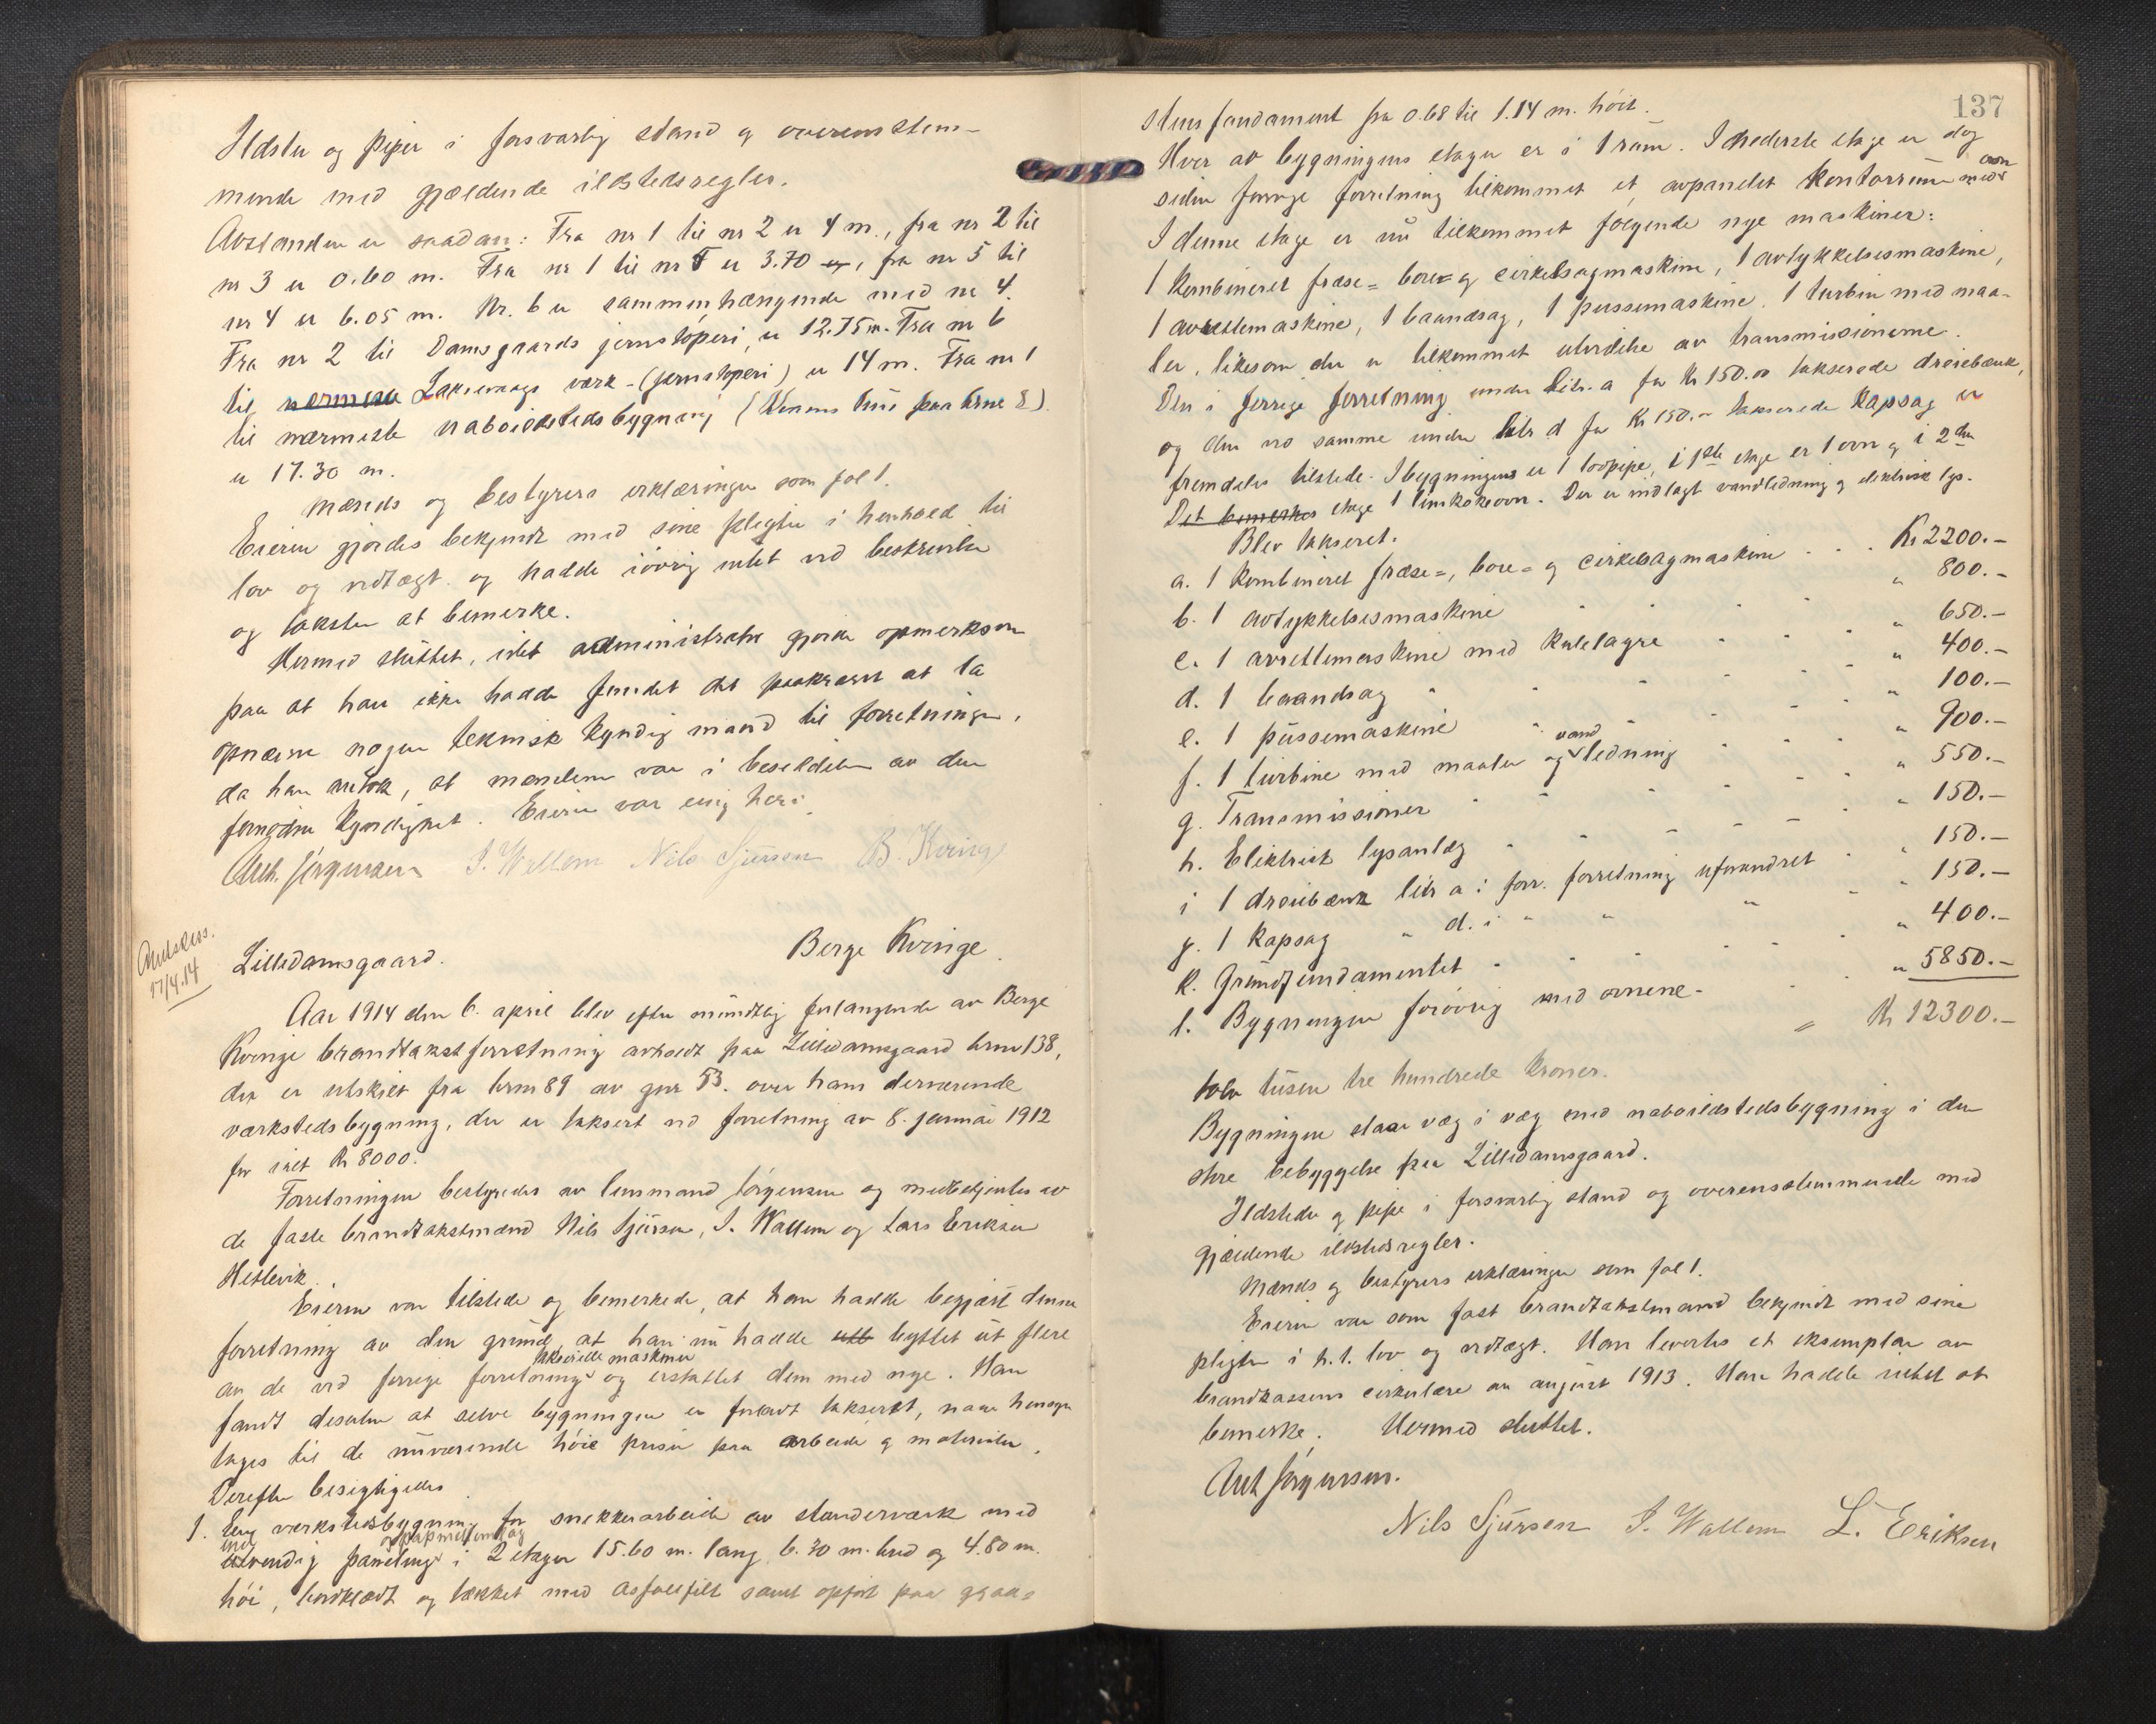 Ildsteder og piper i forsvarlig stand og overensstem-
mende med gjældende ildstedsregler.
Avstanden er saadan: Fra nr 1 til nr 2 er 4 m., fra nr 2 til
nr 3 er 0.60 m. Fra nr 1 til nr 5 er 3.70 og, fra nr 5 til
nr 4 er 6.05 m. Nr. 6 er sammenhængende med nr 4.
Fra nr 2 til Damsgaards jernstøperi, er 12.75 m. Fra nr 6
til nærmeste Laksevaags værk - (jernstøperi) er 14 m. Fra nr 1
til nærmeste naboildstedsbygning ( hus paa brnr 8)
er 17.30 m.
Mænds og bestyrers erklæringer som fol 1.
Eieren gjordes bekjendt med sine pligter i henhold til
lov og vedtægt og hadde iøvrig intet ved beskrivelsen
og taksten at bemerke.
Hermed sluttet, idet administrator gjorde opmerksom
paa at han ikke hadde fundet det paakrævet at la
opnævne nogen teknisk kyndig mand til forretningen,
da han antok, at mændene var i besiddelse av den
fornødne kyndighet. Eieren var enig heri.
Ant. Jørgensen J. Wallem Nils Sjursen B. Kvinge
Andskess.
17/4.14
Lilledamsgaard. Berge Kvinge.
Aar 1914 den 6. april blev efter mundtlig forlangende av Berge
Kvinge brandtakstforretning avholdt paa Lilledamsgaard brnr 138,
der er utskilt fra brnr 89 av gnr 53. over hans derværende
værkstedsbygning, der er taksert ved forretning av 8. januar 1912
for ialt Kr 8000.
Forretningen bestyredes av lensmand Jørgensen og medbetjentes av
de faste brandtakstmænd Nils Sjursen, J. Wallem og Lars Eriksen
Hetlevik.
Eieren var tilstede og bemerkede, at han hadde begjært denne
forretning av den grund, at han nu hadde utb byttet ut flere
takserede maskiner
av de ved forrige forretning og erstattet dem med nye. Han
fandt desuten at selve bygningen er forlavt taksert, naar hensyn
tages til de nuværende høie priser paa arbeide og materialer.
Derefter besigtigedes
1. Eng værkstedsbygning for snekkerarbeide av standerværk med
ind og papmellemlag
utvendig paneling i 2 etager 15.60 m. lang 6.30 m. bred og 4.80 m.
høi, bordklædt og tækket med asfaltfilt samt opført paa graa-
137
stens fundament fra 0.68 til 1.14 m. høit.
Hver av bygningens etager er i 1 rum. I nederste etage er dog
siden forrige forretning tilkommet et avpanelet kontorrum med ovn
I denne etage er nu tilkommet følgende nye maskiner:
1 kombineret fræse- bore- og cirkelsagmaskine, 1 avtykkelsesmaskine,
1 avrettemaskine, 1 baandsag, 1 pussemaskine. 1 turbin med maa-
ler, likesom der er tilkommet utvidelse av transmissionerne.
Den i forrige forretning under litr. a for Kr 150.00 takserede dreiebænk,
og den ved samme under litr d for Kr 150.- takserede kapsag er
fremdeles tilstede. I bygningens er 1 løvpipe, i 1ste etage er 1 ovn og i 2den
Det bemerkes etage 1 limkokeovn. Der er indlagt vandledning og elektrisk lys.
Blev takseret.
a. 1 kombineret fræse-, bore- og cirkelsagmaskine . . . Kr 2200.-
b. 1 avtykkelsesmaskine " 800.-
c. 1 avrettemaskine med kulelagre " 650.-
d. 1 baandsag " 400.-
e. 1 pussemaskine " 100.-
f. 1 turbine med maaler og vand ledning " 900.-
g. Transmissioner " 550.-
h. Elektrisk lysanlæg " 150.-
i 1 dreiebænk litr a i forr. forretning uforandret " 150.-
j. 1 kapsag " d. i " " " 150.-
k. Grundfundamentet " 400.-
l. Bygningen forøvrig med ovnene " 5850.-
Kr 12300.-
tolv tusen tre hundrede kroner.
Bygningen staar væg i væg med naboildstedsbygning i den
store bebyggelse paa Lilledamsgaard.
Ildsteder og pipe i forsvarlig stand og overensstemmende med
gjældende ildstedsregler.
Mænds og bestyrers erklæringer som fol 1.
Eieren var som fast brandtakstmand bekjendt med sine
pligter i h.t. lov og vedtægt. Han levertes et eksemplar av
brandkassens cirkulære av august 1913. Han hadde intet at
bemerke. Hermed sluttet.
Ant Jørgensen.
Nils Sjursen J. Wallem L. Eriksen